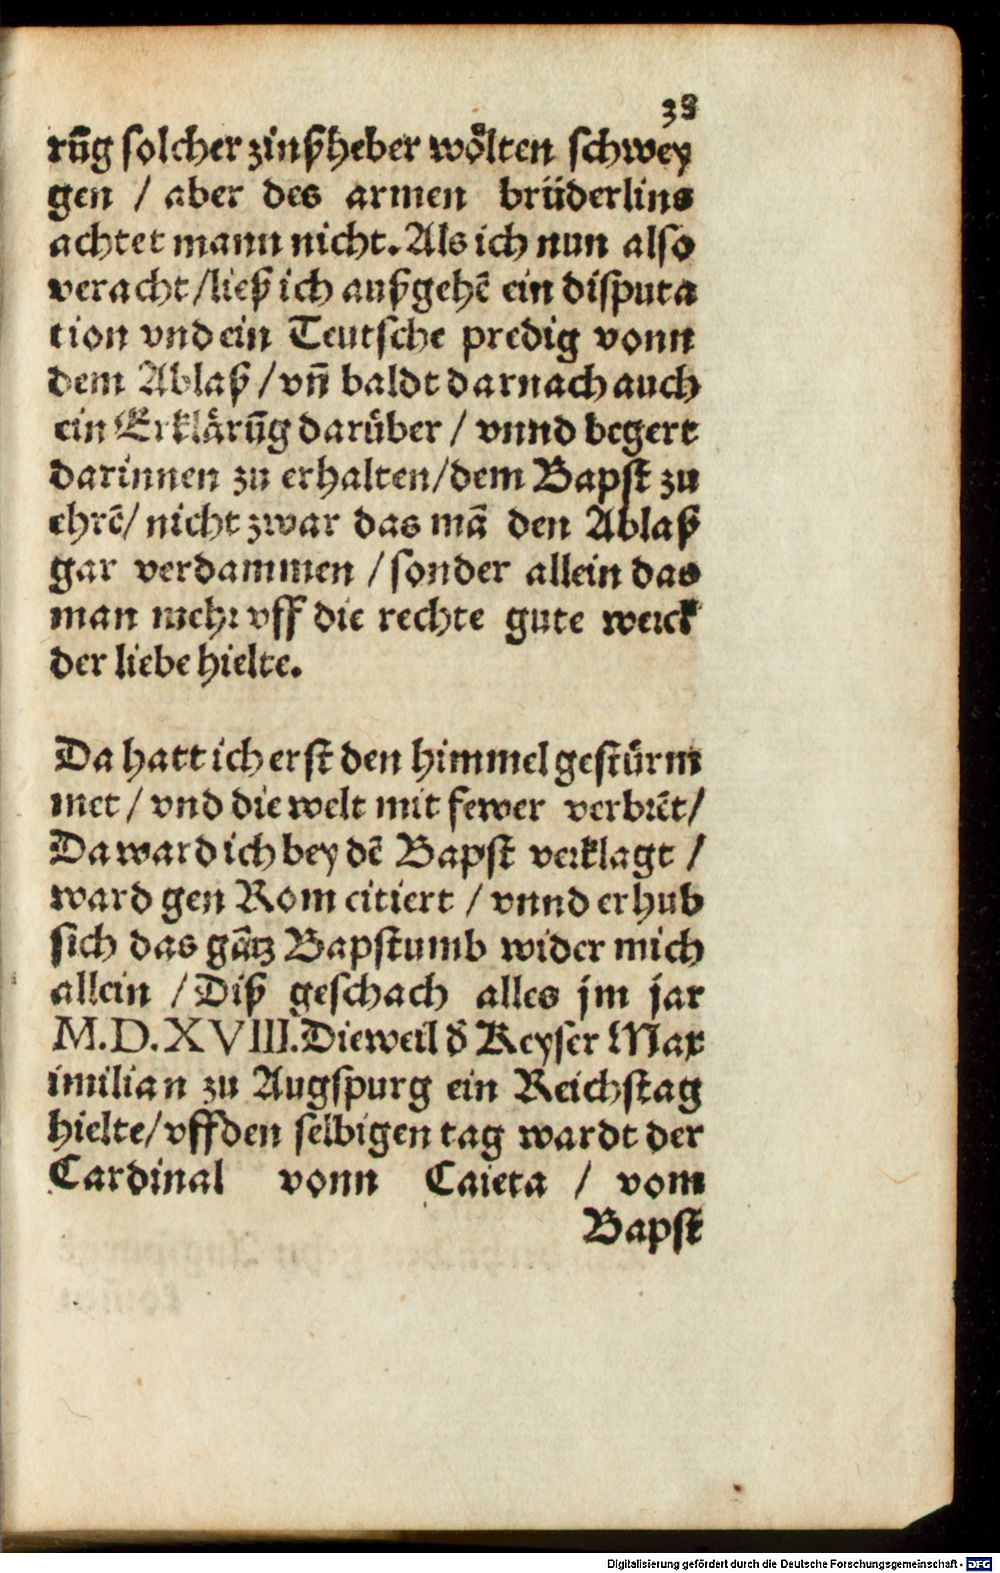 38
rūg solcher zinßheber woͤlten schwey
gen / aber des armen brüderlins
achtet mann nicht. Als ich nun also
veracht / ließ ich außgehē ein disputa
tion vnd ein Teutsche predig vonn
dem Ablaß / vn̄ baldt darnach auch
ein Erklaͤrūg daruͤber / vnnd begert
darinnen zu erhalten / dem Bapst zu
ehrē / nicht zwar das mā den Ablaß
gar verdammen / sonder allein das
man mehr vff die rechte gute werck
der liebe hielte.
Da hatt ich erst den himmel gestuͤrm
met / vnd die welt mit fewer verbrēt /
Da ward ich bey dē Bapst verklagt /
ward gen Rom citiert / vnnd erhub
sich das gātz Bapstumb wider mich
allein / Diß geschach alles jm jar
M.D.XVIII. Dieweil d̄ Keyser Max
imilian zu Augspurg ein Reichstag
hielte / vff den selbigen tag wardt der
Cardinal vonn Caieta / vom
Bapst
Digitalisierung gefördert durch die Deutsche Forschungsgemeinschaft - DFG